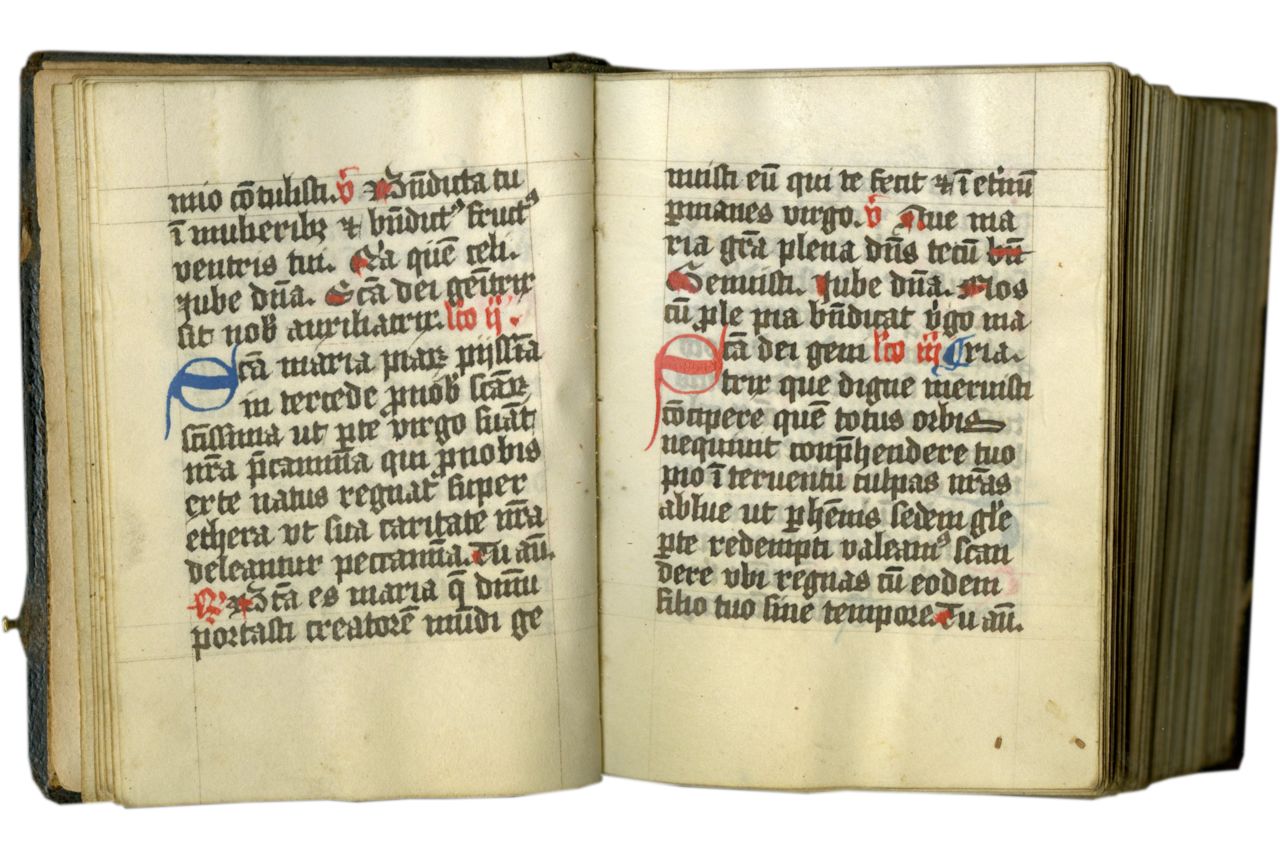 mio cōtulisti. v̄ Bn̄dicta tu
ī mulieribꝫ ⁊ bn̄dictꝰ fructꝰ
ventris tui. Q̄a quē celi.
Jube dn̄a. Scā dei genitrix
sit nob̄ auxiliatrix. lc̄o ij.
Scā maria piaꝝ piissīa
intercede ꝓ nob̄ scāꝝ
scīssima ut ꝑ te virgo sumāt
nr̄a p̄camīa qui ꝓ nobis
ex te natus regnat̄ super
ethera vt sua caritate nr̄a
deleantur peccamīa. Tu au̅.
R̄ Bt̄a es maria q̄ dn̄m
portasti creatorē mūdi ge
nuisti eū qui te fecit ⁊ ī et̄nū
ꝑmanes virgo. v̄ Aue ma
ria gr̄a plena dn̄s tecū bn̄
Genuisti. Jube dn̄a. Nos
cū ꝓle pia bn̄dicat v̓go ma
Scā dei geni lc̄o iij ria.
trix que digne meruisti
cōcipere quē totus orbis
nequiuit conp̄hendere tuo
pio īteruentu culpas nr̄as
ablue ut ꝑhēnis sedem gl̄e
ꝑ te redempti valeamꝰ scan
dere vbi regnas cū eodem
filio tuo sine tempore. Tu au̅.